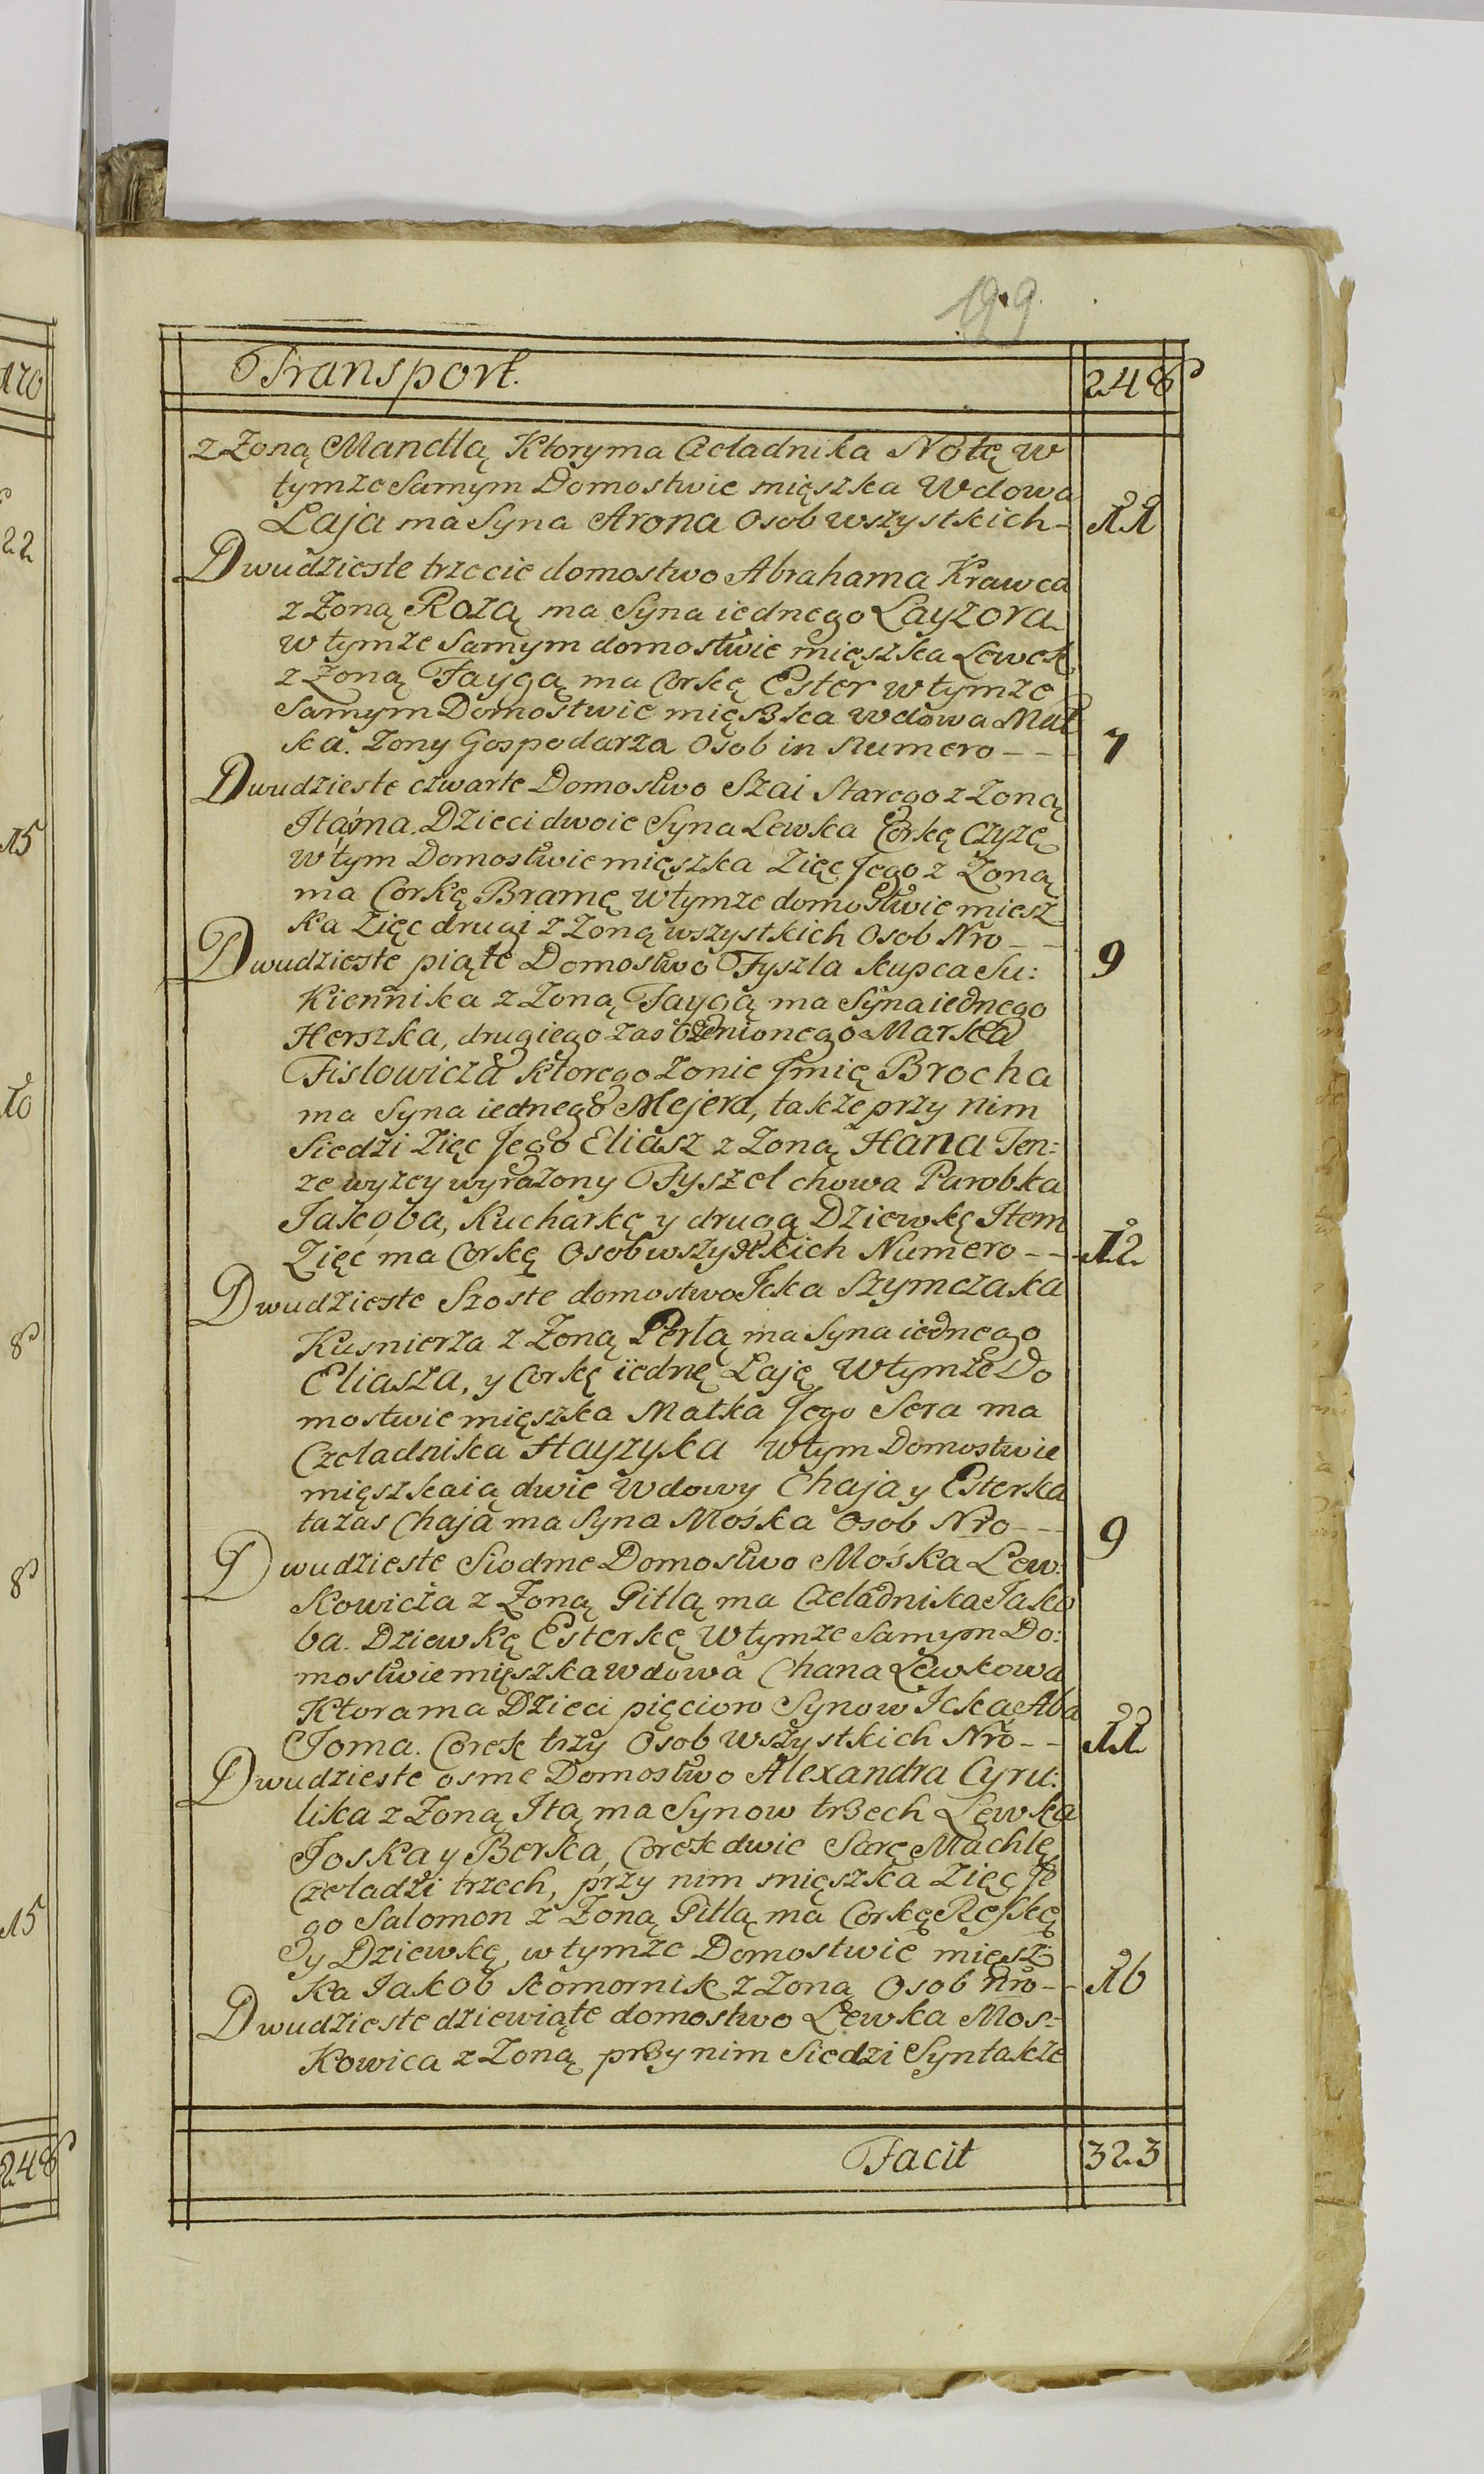 199.
Transport. 248
z Zoną Mandlą Ktory ma Czeladnika Notę w
tymze Samym Domostwie mięszka Wdowa
Laja ma Syna Arona Osob wszystkich - 11
Dwudzieste trzecie domostwo Abrahama Krawca
z Zoną Rozą ma Syna iednego Layzora
w tymze Samym domostwie mięszka Lewek
z Zoną Faygą ma Corkę Ester w tymze
Samym Domostwie mięszka Wdowa Mat
ka. Zony Gospodarza Osob in Numero - - - 7
Dwudzieste czwarte Domostwo Szai Starego z Zoną
Itą ma Dzieci dwoie Syna Lewka Corkę Czyzę
w tym Domostwie mięszka Zięc Jego z Zoną
ma Corkę Bramę w tymze domostwie miesz
ka Zięc drugi z Zoną wszystkich Osob Nro - - 9
Dwudzieste piąte Domostwo Fyszla kupca Su:
kiennika z Zoną Faygą ma Syna iednego
Herszka, drugiego zas ozenionego Marka
Fislowicza ktorego Zonie Jmię Brocha
ma Syna iednego Mejera, takze przy nim
Siedzi Zięc Jego Eliasz z Zoną Hana Ten:
ze wyzey wyrazony Fyszel chowa Parobka
Jakoba, Kucharkę y drugą Dziewkę Item
Zięć ma Corkę Osob wszystkich Numero - - - 12
Dwudzieste Szoste domostwo Icka Szymczaka
Kusnierza z Zoną Perlą ma Syna iednego
Eliasza, y Corkę iednę Laję W tymze Do
mostwie mięszka Matka Jego Sera ma
Czeladnika Hayzyka w tym Domostwie
mięszkaią dwie Wdowy Chaja y Esterka
ta zas Chaja ma Syna Mośka Osob Nro - - 9
Dwudzieste Siodme Domostwo Mośka Lew:
kowicza z Zoną Gitlą ma Czeladnika Jako
ba. Dziewkę Esterkę w tymze Samym Do:
mostwie mięszka Wdowa Chana Lewkowa
Ktora ma Dzieci pięcioro Synow Icka, Aba
Joma. Corek trzy Osob Wszystkich Nro - - 11
Dwudzieste osme Domostwo Alexandra Cyru:
lika z Zoną Itą ma Synow trzech Lewka
Joska y Berka, Corek dwie Sarę Machlę
Czeladzi trzech, przy nim mięszka Zięc Je
go Salomon z Zoną Gitlą ma Corkę Reskę
y Dziewkę, w tymze Domostwie miesz
ka Jakob komornik z Zoną Osob Nro - - 16
Dwudzieste dziewiąte domostwo Lewka Mos:
kowica z Zoną przy nim Siedzi Syn takze
Facit 323
170
22
15
10
8
8
15
248